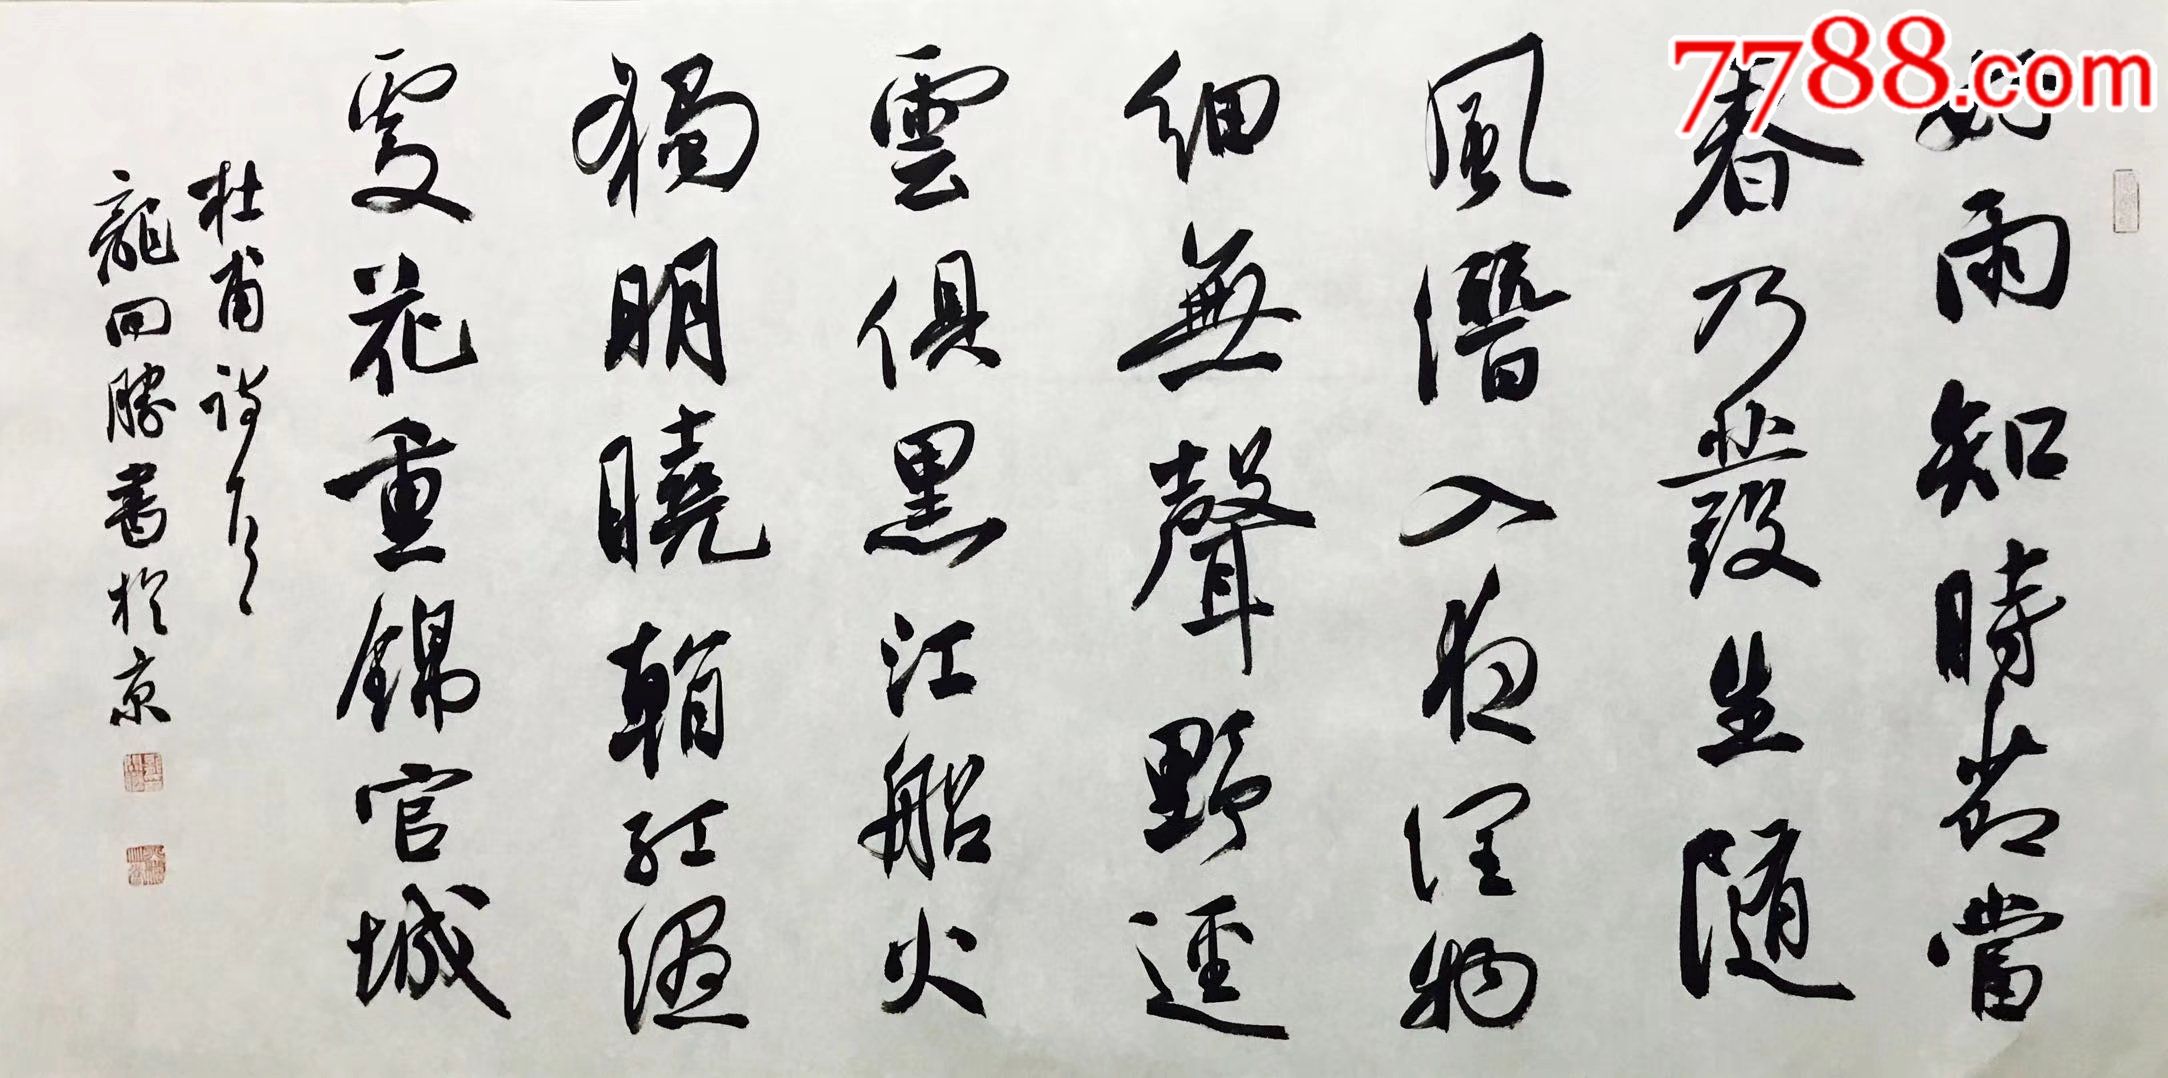 7788.com
好雨知時節當
春乃發生隨
風潛入夜潤物
細無聲野逕
雲俱黑江船火
獨明曉看紅濕
處花重錦官城
杜甫詩一首
龍回勝書於京